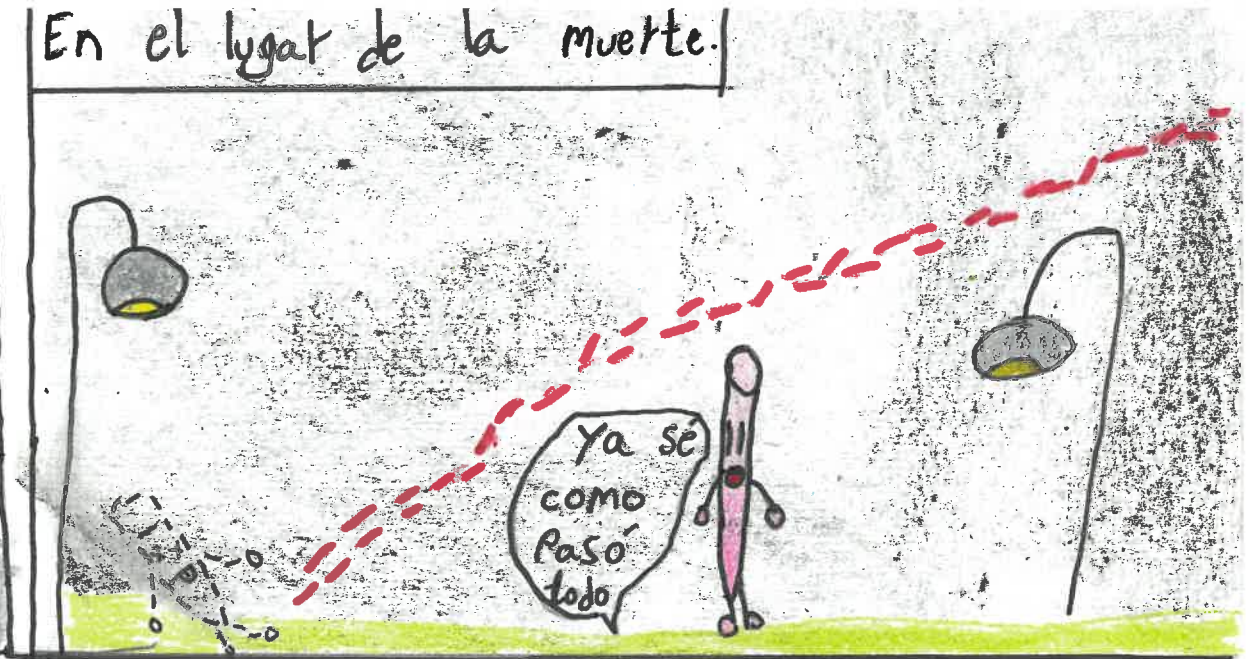 En el lugar de la muerte.
Ya sé
como
Pasó
todo